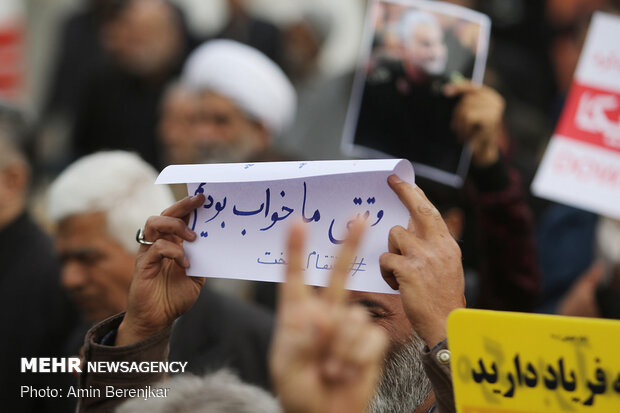 وقتی ما خواب بودیم
#انتقام_سخت
یکا
DOWN
ه فریاد دارید
MEHR NEWSAGENCY
Photo: Amin BERENJKAR